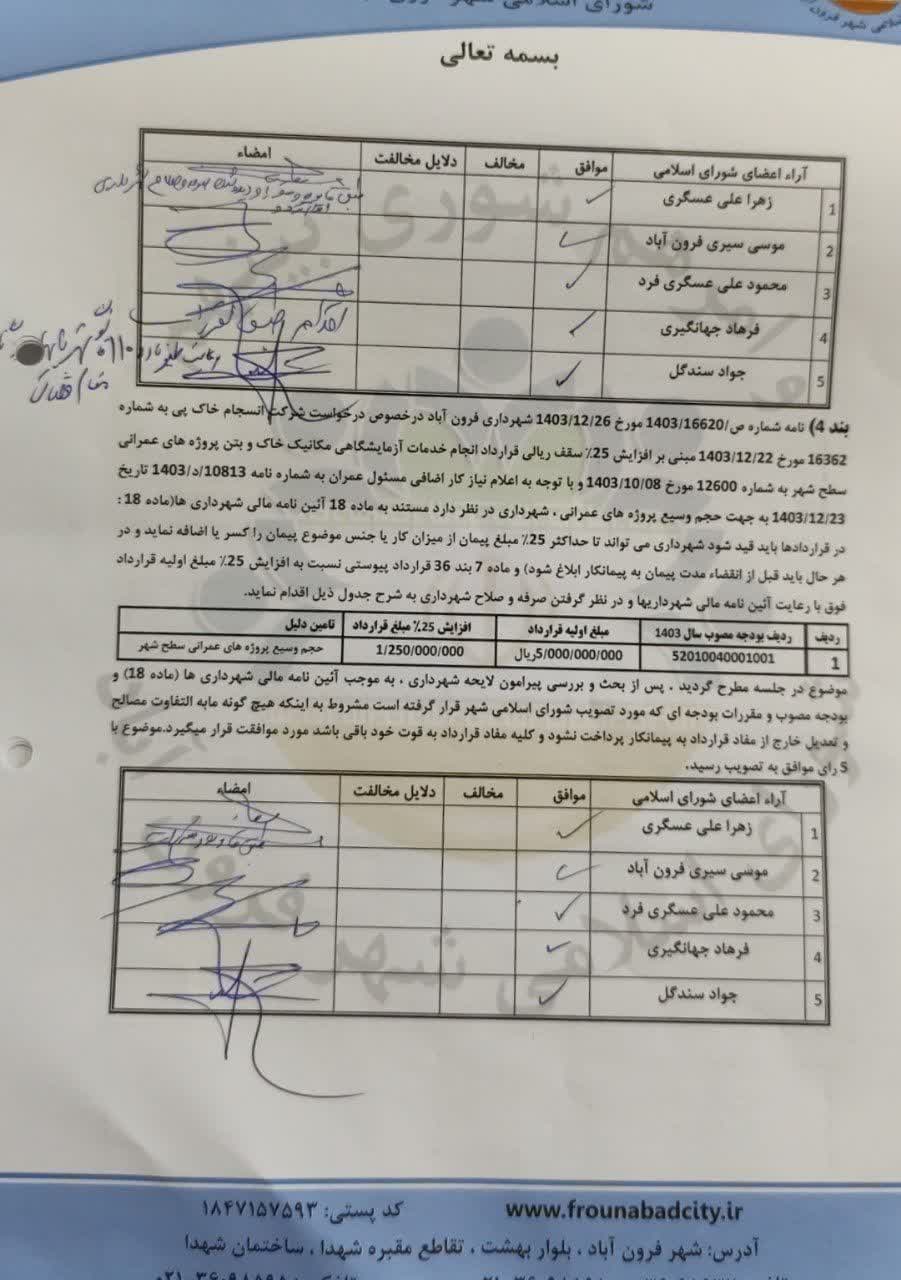 شورای اسلامی شهر فرون
اسلامی شهر فرون
بسمه تعالی
آراء اعضای شورای اسلامی موافق مخالف دلایل مخالفت امضاء
1 زهرا علی عسگری
2 موسی سیری فرون آباد
3 محمود علی عسگری فرد
4 فرهاد جهانگیری
5 جواد سندگل
بند 4) نامه شماره ص/1403/16620 مورخ 1403/12/26 شهرداری فرون آباد درخصوص درخواست شرکت انسجام خاک پی به شماره
16362 مورخ 1403/12/22 مبنی بر افزایش 25٪ سقف ریالی قرارداد انجام خدمات آزمایشگاهی مکانیک خاک و بتن پروژه های عمرانی
سطح شهر به شماره 12600 مورخ 1403/10/08 و با توجه به اعلام نیاز کار اضافی مسئول عمران به شماره نامه 10813/د/1403 تاریخ
1403/12/23 به جهت حجم وسیع پروژه های عمرانی ، شهرداری در نظر دارد مستند به ماده 18 آئین نامه مالی شهرداری ها(ماده 18 :
در قراردادها باید قید شود شهرداری می تواند تا حداکثر 25٪ مبلغ پیمان از میزان کار یا جنس موضوع پیمان را کسر یا اضافه نماید و در
هر حال باید قبل از انقضاء مدت پیمان به پیمانکار ابلاغ شود) و ماده 7 بند 36 قرارداد پیوستی نسبت به افزایش 25٪ مبلغ اولیه قرارداد
فوق با رعایت آئین نامه مالی شهرداریها و در نظر گرفتن صرفه و صلاح شهرداری به شرح جدول ذیل اقدام نماید.
ردیف ردیف بودجه مصوب سال 1403 مبلغ اولیه قرارداد افزایش 25٪ مبلغ قرارداد تامین دلیل
1 52010040001001 5/000/000/000ریال 1/250/000/000 حجم وسیع پروژه های عمرانی سطح شهر
موضوع در جلسه مطرح گردید . پس از بحث و بررسی پیرامون لایحه شهرداری ، به موجب آئین نامه مالی شهرداری ها (ماده 18) و
بودجه مصوب و مقررات بودجه ای که مورد تصویب شورای اسلامی شهر قرار گرفته است مشروط به اینکه هیچ گونه مابه التفاوت مصالح
و تعدیل خارج از مفاد قرارداد به پیمانکار پرداخت نشود و کلیه مفاد قرارداد به قوت خود باقی باشد مورد موافقت قرار میگیرد.موضوع با
5 رای موافق به تصویب رسید.
آراء اعضای شورای اسلامی موافق مخالف دلایل مخالفت امضاء
1 زهرا علی عسگری
2 موسی سیری فرون آباد
3 محمود علی عسگری فرد
4 فرهاد جهانگیری
5 جواد سندگل
www.frounabadcity.ir کد پستی: ۱۸۴۷۱۵۷۵۹۳
آدرس: شهر فرون آباد ، بلوار بهشت ، تقاطع مقبره شهدا ، ساختمان شهدا